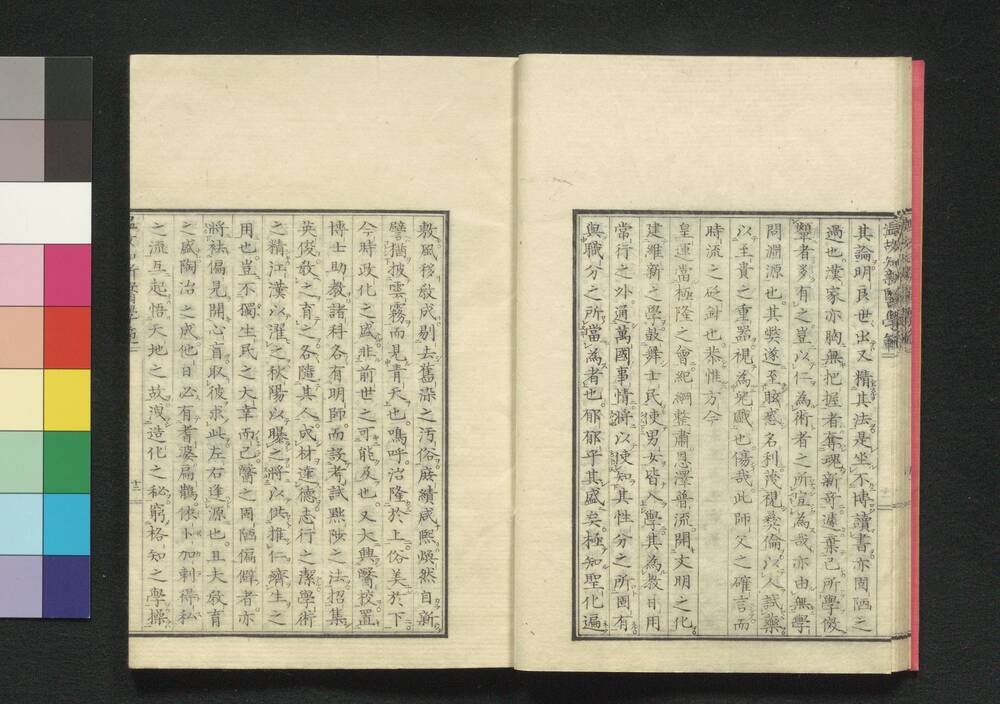 其論明良世出又精其法是坐不博讀書亦固陋之
過也漢家亦胸無把握者奪魂新奇遽棄己所學倣
顰者多有之豈以仁為術者之所宜為哉亦由無學
問淵源也其獘遂至眩惑名利蔑視彜倫以人試藥
以至貴之重器視為兒戲也傷哉此師父之確言而
時流之砭針也恭惟方今
皇運當極隆之會紀綱整肅恩澤普流開文明之化
建維新之學鼓舞士民使男女皆入學其為教日用
常行之外通萬國事情將以使知其性分之所固有
與職分之所當為者也郁郁乎其盛矣極知聖化遍
敷風移教成剔去舊染之汚俗庶績咸熙煥然自新
譬猶披雲霧而見青天也嗚呼治隆於上俗美於下
今時政化之盛非前世之可能及也又大興醫校置
博士助教諸科各有明師而設考試黜陟之法招集
英俊教之育之各隨其人成材達德志行之潔學術
之精江漢以濯之秋陽以曝之將以供推仁濟生之
用也豈不獨生民之大幸而已醫之固陋偏僻者亦
將袪偏見開心盲取彼求此左右逢源也且夫教育
之盛陶冶之成他日必有耆婆扁鵲依卜加剌得私
之流互起悟天地之故洩造化之秘窮格知之學操